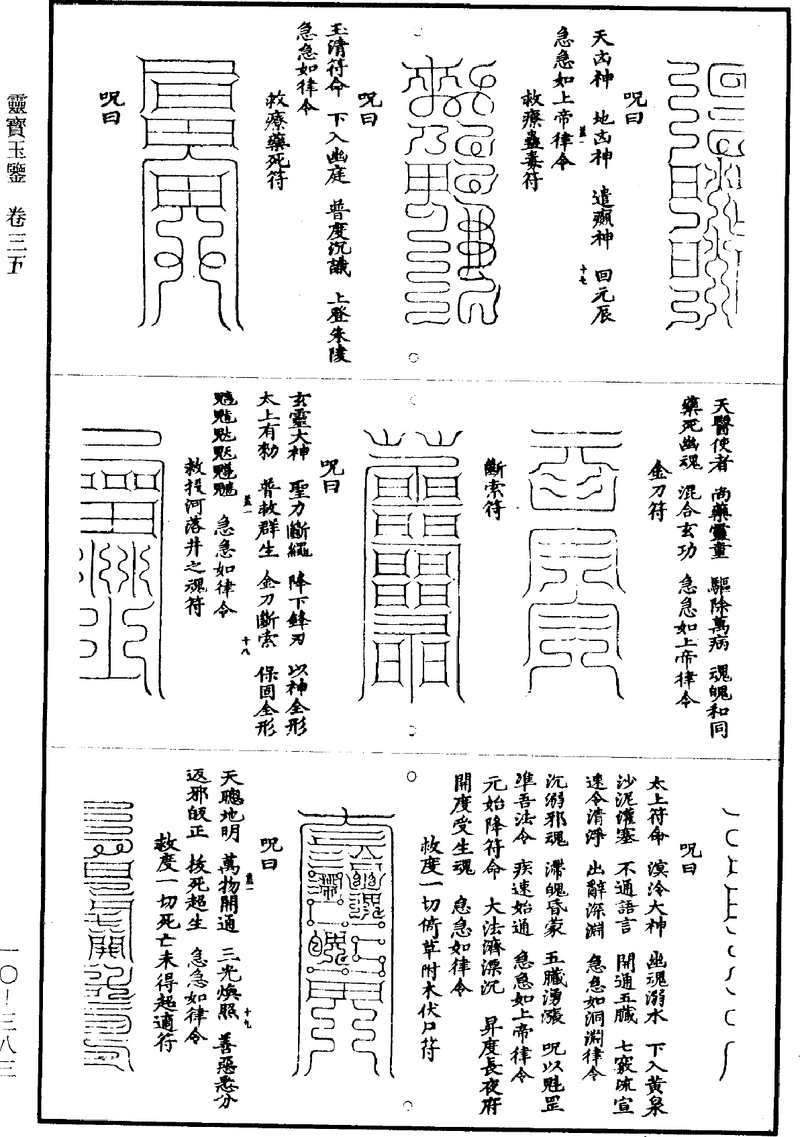 靈寶玉鑒 卷三五
一〇—三八三
呪曰
天凶神 地凶神 遣瘢神 回元辰
急急如上帝律令
救療蠱毒符
呪曰
玉清符命 下入幽庭 普度沉議 上登朱陵
急急如律令
救療藥死符
呪曰
天醫使者 尚藥靈童 驅除萬病 魂魄和同
藥死幽魂 混合玄功 急急如上帝律令
金刀符
斷索符
呪曰
玄靈大神 聖力斷繩 降下鋒刃 以神全形
太上有勑 普救群生 金刀斷索 保固全形
急急如律令
救投河落井之魂符
呪曰
太上符命 溟泠大神 幽魂溺水 下入黃泉
沙泥灌塞 不通語言 開通五臟 七竅疏宣
速令清淨 出辭深淵 急急如洞淵律令
沉溺邪魂 滯魄昏蒙 五臟湧漲 呪以魁罡
準吾法令 疾速始通 急急如上帝律令
元始降符命 大法濟漂沉 昇度長夜府
開度受生魂 急急如律令
救度一切倚草附木伏尸符
呪曰
天聰地明 萬物開通 三光煥照 善惡悉分
返邪皈正 拔死超生 急急如律令
救度一切死亡未得超適符